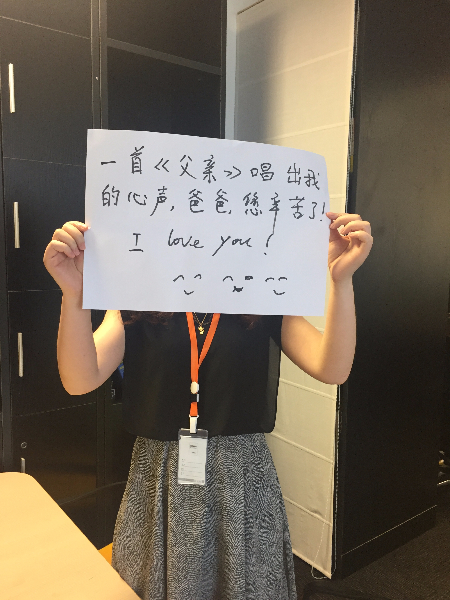 一首《父亲》唱出我
的心声,爸爸,您辛苦了!
I love you!